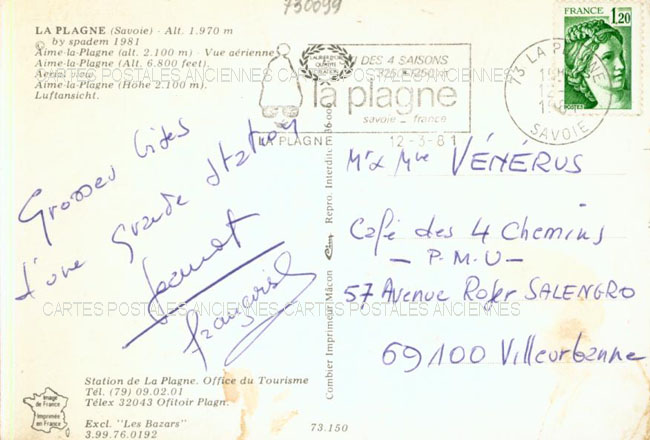 730099
LA PLAGNE (Savoie) - Alt. 1.970 m
© by spadem 1981
Aime-la-Plagne (alt. 2.100 m) - Vue aérienne
Aime-la-Plagne (Alt. 6.800 feet).
Aerial view.
Aime-la-Plagne (Höhe 2.100 m).
Luftansicht.
CARTES POSTALES ANCIENNES CARTES POSTALES ANCIENNES
DES 4 SAISONS
la plagne
savoie - france
LA PLAGNE 12-3-81
FRANCE
1,20
73 LA PLAGNE
SAVOIE
Grosses bises
d'une grande station
Françoise
Mr & Mme VÉNÉRUS
Café des 4 Chemins
- P.M.U -
57 Avenue Roger SALENGRO
69100 Villeurbanne
CARTES POSTALES ANCIENNES CARTES POSTALES ANCIENNES
Combier Imprimeur Mâcon Cim Repro. Interdite
Station de La Plagne. Office du Tourisme
Tél. (79) 09.02.01
Télex 32043 Ofitoir Plagn.
Excl. "Les Bazars"
3.99.76.0192
73.150
Image de France
Imprimée en France